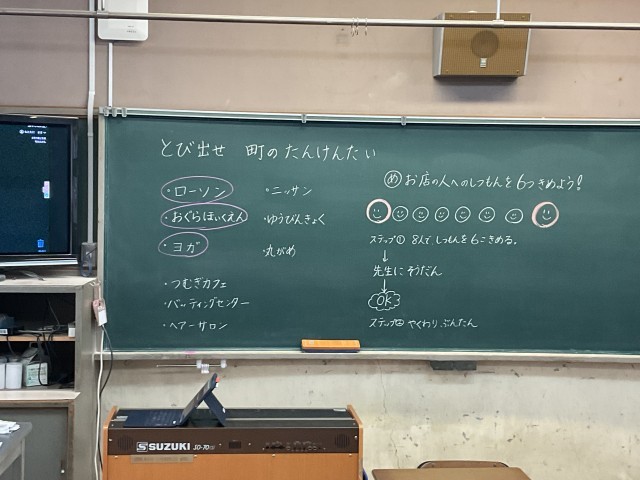 とび出せ 町のたんけんたい
・ローソン
・おぐらほいくえん
・ヨガ
・つむぎカフェ
・バッティングセンター
・ヘアーサロン
・ニッサン
・ゆうびんきょく
・丸がめ
め お店の人へのしつもんを6つきめよう!
ステップ① 8人で しつもんを6こきめる。
↓
先生にそうだん
↓
OK
ステップ② やくわり ぶんたん
SUZUKI SD-70